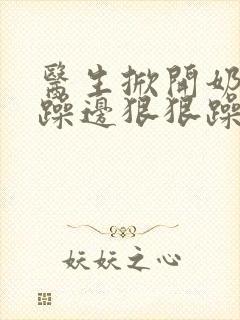 醫生掀開奶
躁邊狠狠躁
妖妖之心